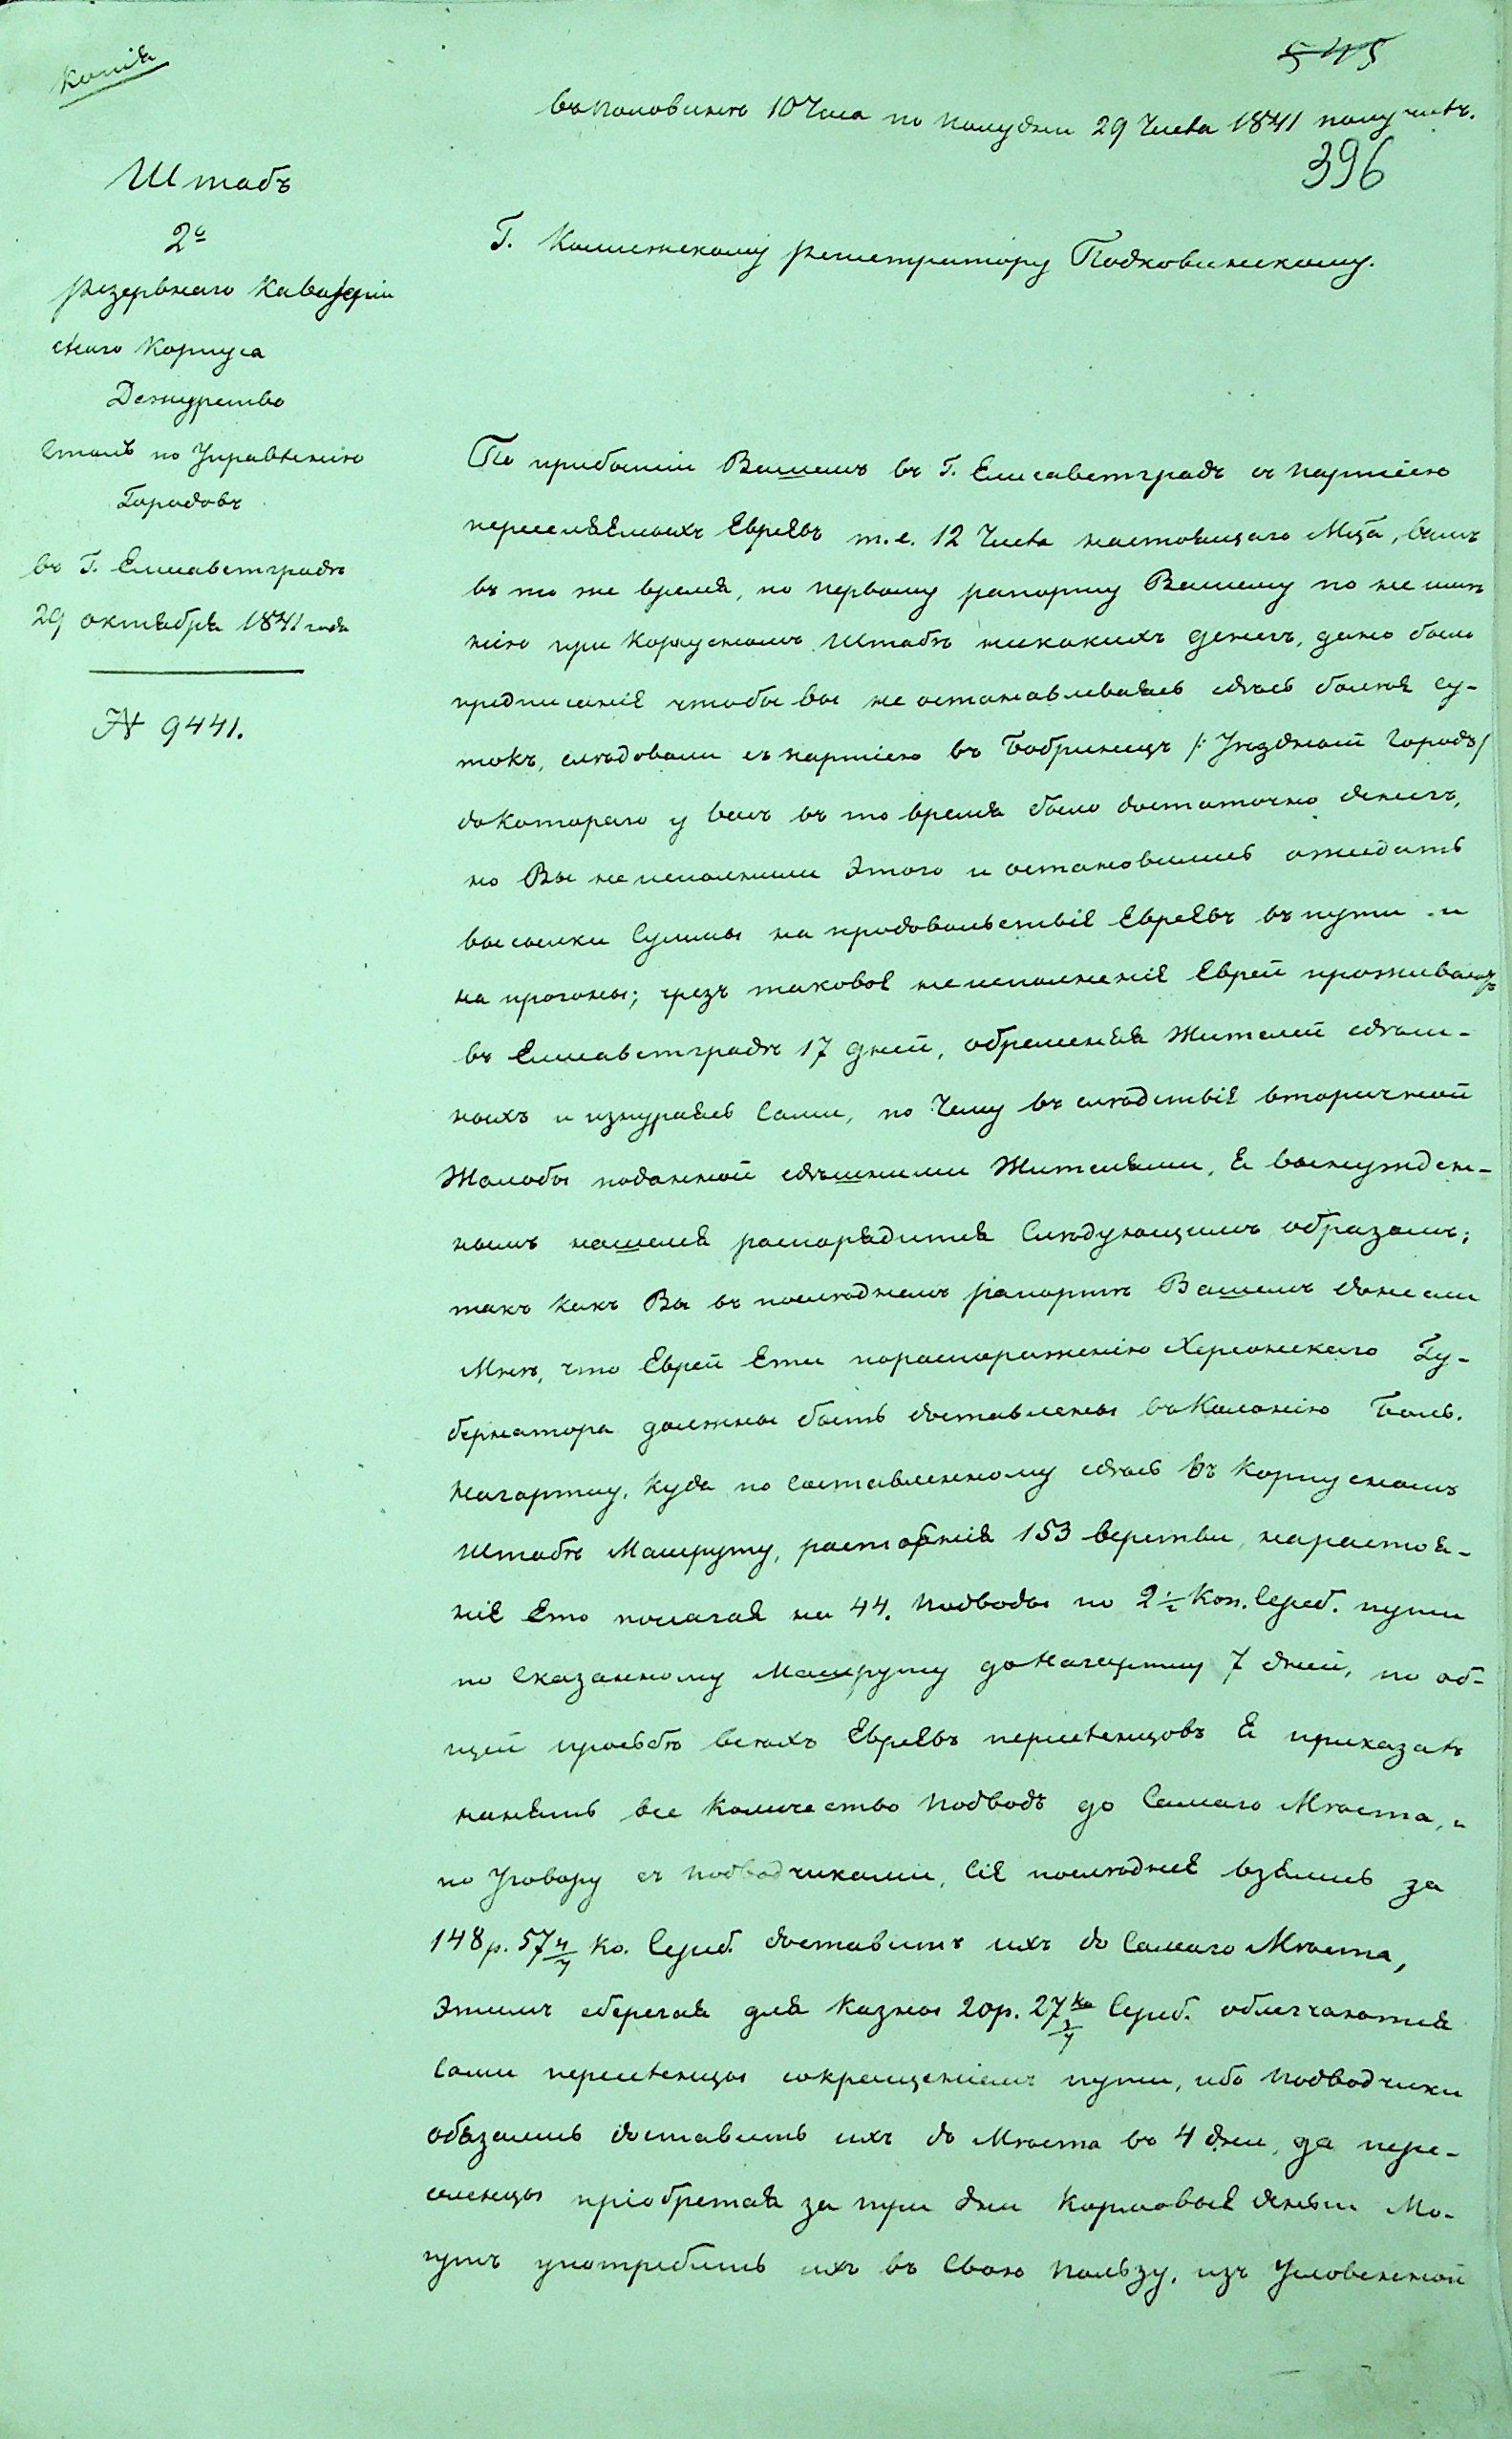 Копія
545
въ половинѣ 10 Часа по полудни 29 Числа 1841 получилъ.
396
Штабъ
2го
резервнаго Кавалерій
скаго Корпуса
Дежурство
Столъ по Управленію
Городовъ
въ Г. Елисаветградѣ
29 октября 1841 года
№ 9441.
Г. Коллежскому регистратору Подковинскому.
По прибытіи Вашемъ въ Г. Елисаветградъ съ партіею
переселяемыхъ Евреевъ т.е. 12 Числа настоящаго Мца, вамъ
въ то же время, по первому рапорту Вашему по не имѣ
нію при Корпусномъ Штабѣ никакихъ денегъ, дано было
предписаніе чтобы вы не останавливаясь здѣсь болѣе су-
токъ, слѣдовали съ партіею въ Бобринецъ /: Уѣздный Городъ/
до Котораго у васъ въ то время было достаточно денегъ,
но Вы не исполнили Этого и остановились ожидать
высылки Суммы на продовольствіе Евреевъ въ пути и
на прогоны; чрезъ таковое не исполненіе Евреи проживаютъ
въ Елисаветградѣ 17 дней, обременяя Жителей здѣш-
ныхъ и изнуряясь Сами, по Чему въ слѣдствіе вторичной
Жалобы поданной здѣшними Жителями, Я вынужден-
нымъ нашелся распорядится Слѣдующимъ образомъ;
такъ какъ Вы въ послѣднемъ рапортѣ Вашемъ донесли
Мнѣ, что Евреи Ети по распоряженію Херсонскаго Гу-
бернатора должны быть доставлены въ Колонію Боль.
Нагартау, Куда по Составленному здѣсь въ Корпусномъ
Штабѣ Маршруту, растояніе 153 верствы, на растоя-
ніе Ето полагая на 44. подводы по 2½ Коп. Сереб. пути
по Сказанному Маршруту до Нагартау 7 дней, по об-
щей просьбѣ всѣхъ Евреевъ переселенцовъ Я приказалъ
нанять все Количество подводъ до Самаго Мѣста, и
по Уговору съ подводчиками, Сіе послѣдніе взялись за
148 р. 57 4/7 Ко. Сереб. доставить ихъ до Самаго Мѣста,
Этимъ сберегая для Казны 20 р. 27 3/7 ко Сереб. облегчаются
Сами переселенцы сокращеніемъ пути, ибо подводчики
обязались доставить ихъ до Мѣста въ 4 дни, да пере-
селенцы пріобретая за три дни Кормовые деньги Мо-
гутъ употребить ихъ въ Свою пользу, изъ Условленной